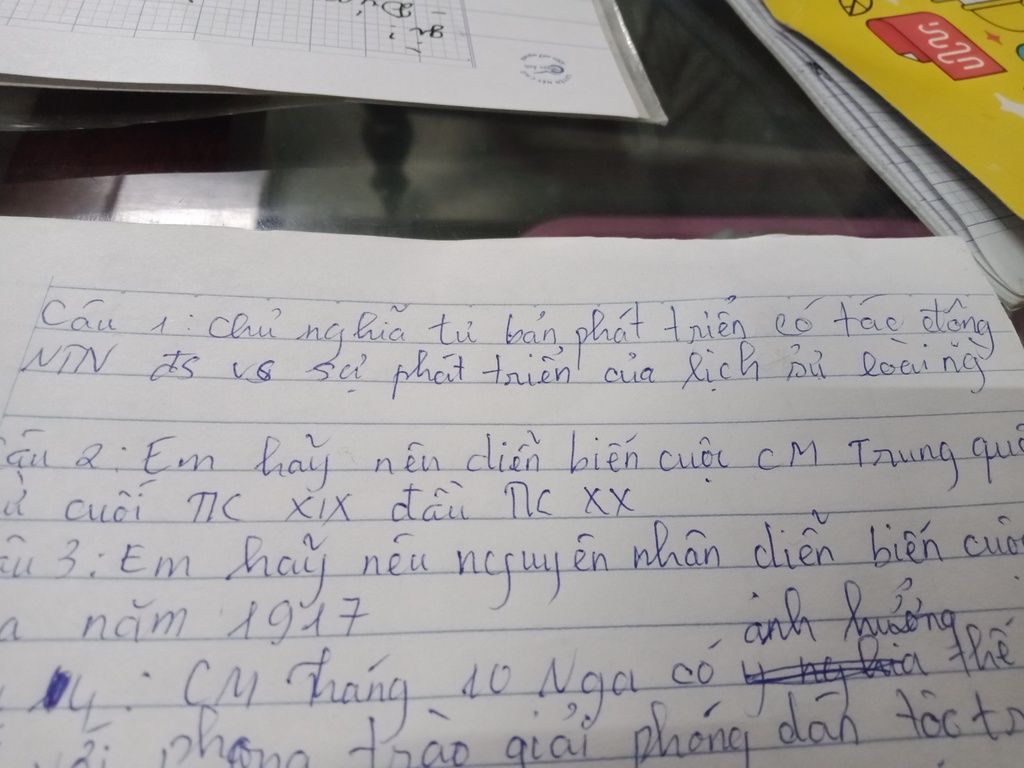 Câu 1: Chủ nghĩa tư bản phát triển có tác động
NTN đs vs sự phát triển của lịch sử loài ng
âu 2: Em hãy nêu diễn biến cuộc CM Trung quố
cuối TK XIX đầu TK XX
âu 3: Em hãy nêu nguyên nhân diễn biến cuộ
a năm 1917
ảnh hưởng
4: CM tháng 10 Nga có thế
với phong trào giải phóng dân tộc tr